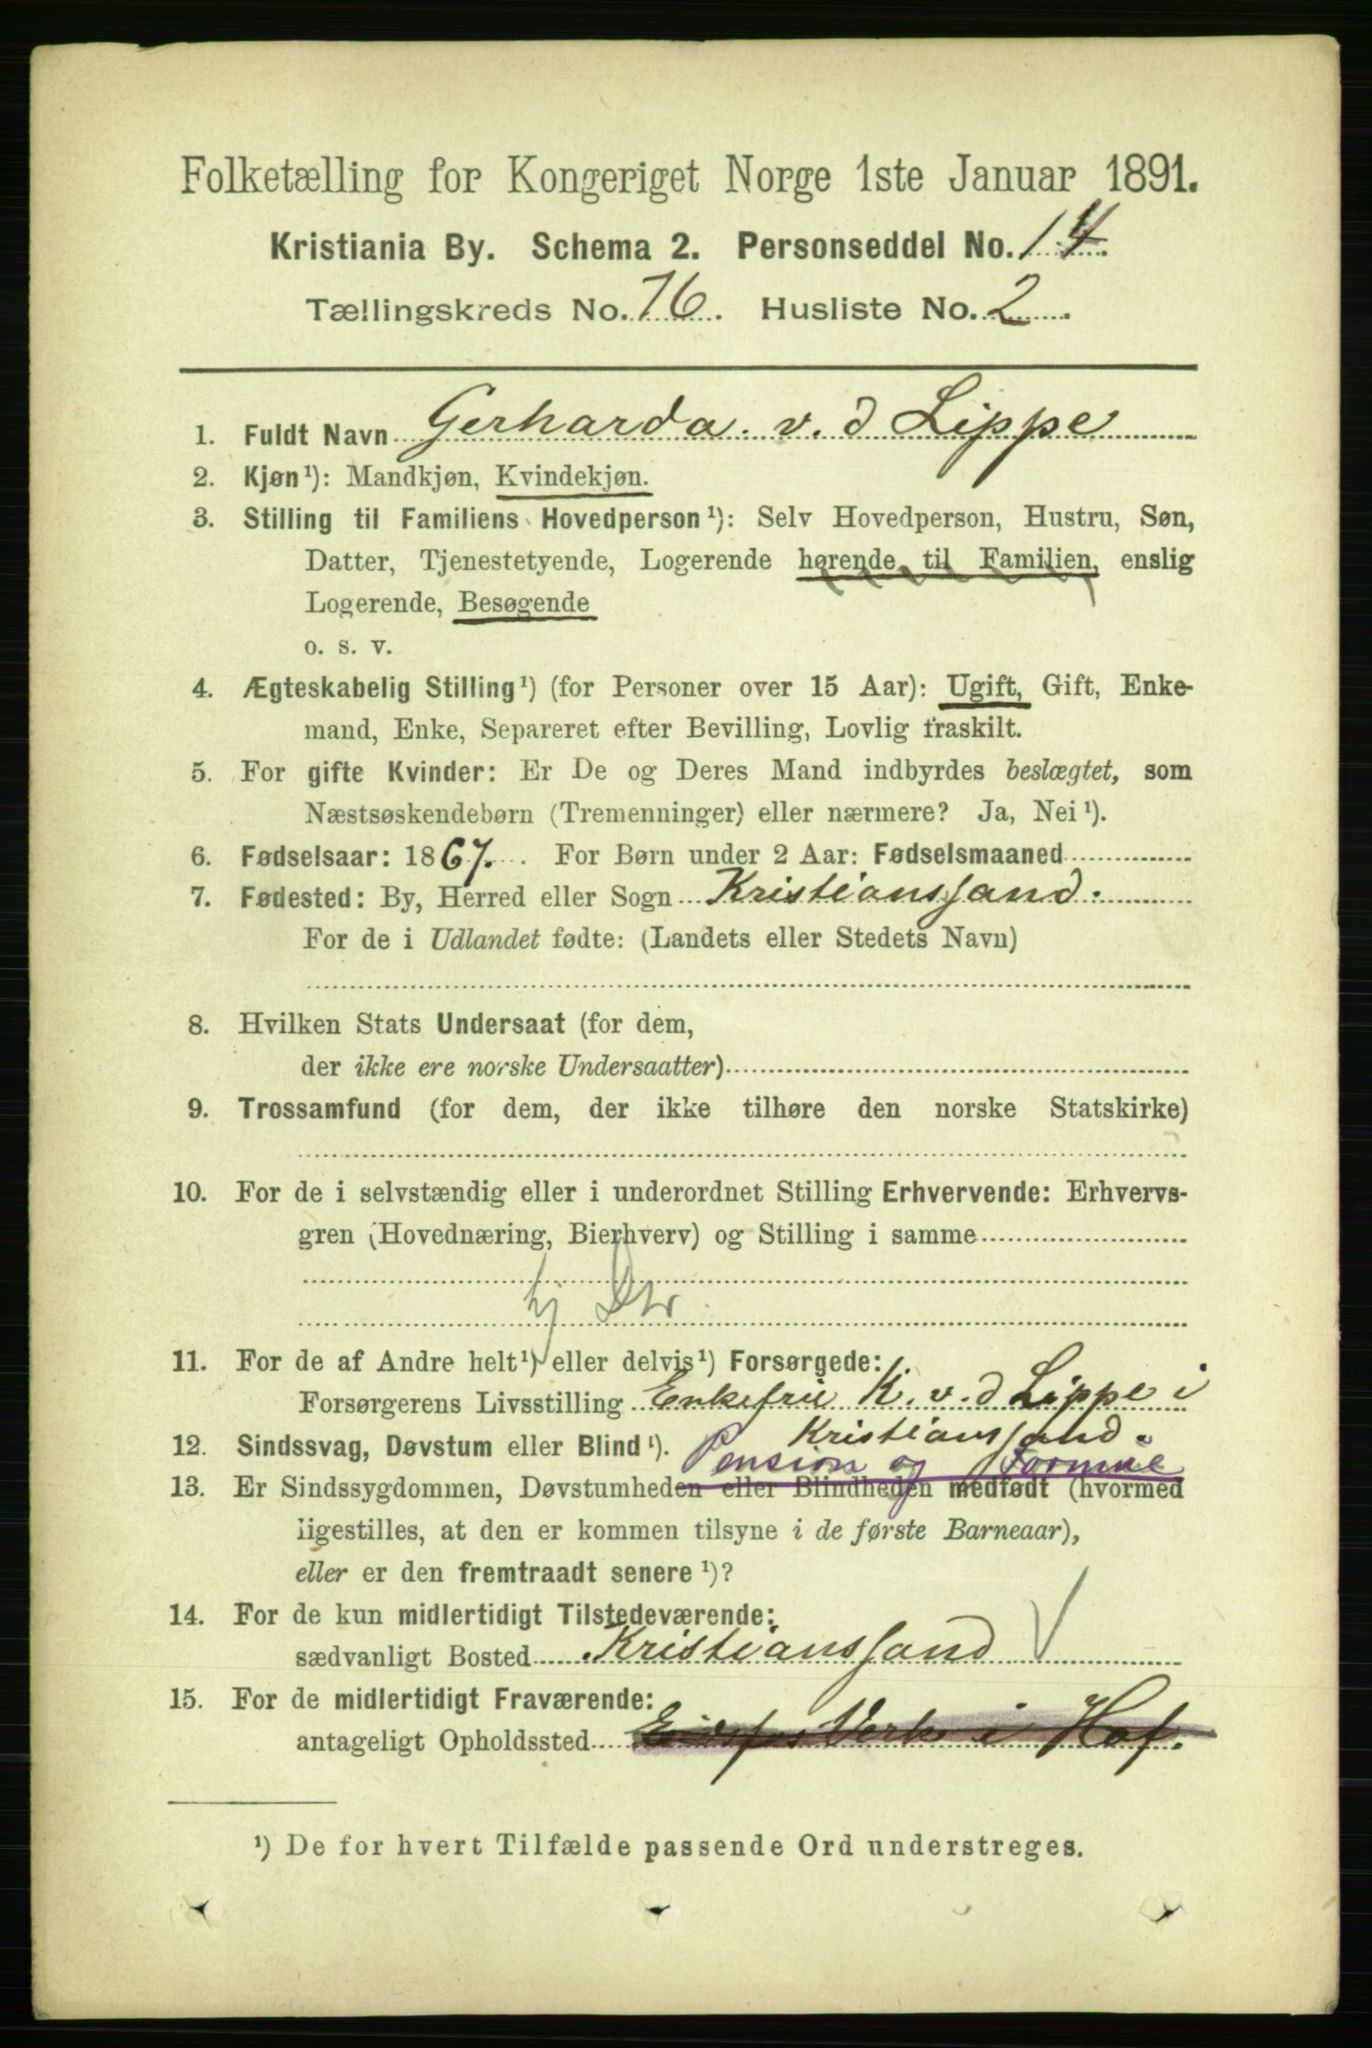 Folketælling for Kongeriget Norge 1ste Januar 1891.
Kristiania By. Schema 2. Personseddel No. 14.
Tællingskreds No. 76. Husliste No. 2.
1. Fuldt Navn Gerharda v. d Lippe
2. Kjøn¹): Mandkjøn, Kvindekjøn.
3. Stilling til Familiens Hovedperson¹): Selv Hovedperson, Hustru, Søn,
Datter, Tjenestetyende, Logerende hørende til Familien, enslig
Logerende, Besøgende
o. s. v.
4. Ægteskabelig Stilling¹) (for Personer over 15 Aar): Ugift, Gift, Enke-
mand, Enke, Separeret efter Bevilling, Lovlig fraskilt.
5. For gifte Kvinder: Er De og Deres Mand indbyrdes beslægtet, som
Næstsøskendebørn (Tremenninger) eller nærmere? Ja, Nei¹).
6. Fødselsaar: 1867. For Børn under 2 Aar: Fødselsmaaned
7. Fødested: By, Herred eller Sogn Kristianssand.
For de i Udlandet fødte: (Landets eller Stedets Navn)
8. Hvilken Stats Undersaat (for dem,
der ikke ere norske Undersaatter)
9. Trossamfund (for dem, der ikke tilhøre den norske Statskirke)
10. For de i selvstændig eller i underordnet Stilling Erhvervende: Erhvervs-
gren (Hovednæring, Bierhverv) og Stilling i samme
hj Dtr
11. For de af Andre helt¹) eller delvis¹) Forsørgede:
Forsørgerens Livsstilling Enkefrue K. v. d Lippe i
Kristianssand.
12. Sindssvag, Døvstum eller Blind¹).
Pension og Formue
13. Er Sindssygdommen, Døvstumheden eller Blindheden medfødt (hvormed
ligestilles, at den er kommen tilsyne i de første Barneaar),
eller er den fremtraadt senere¹)?
14. For de kun midlertidigt Tilstedeværende:
sædvanligt Bosted Kristianssand
15. For de midlertidigt Fraværende:
antageligt Opholdssted Eidsfos Verk i Hof.
¹) De for hvert Tilfælde passende Ord understreges.